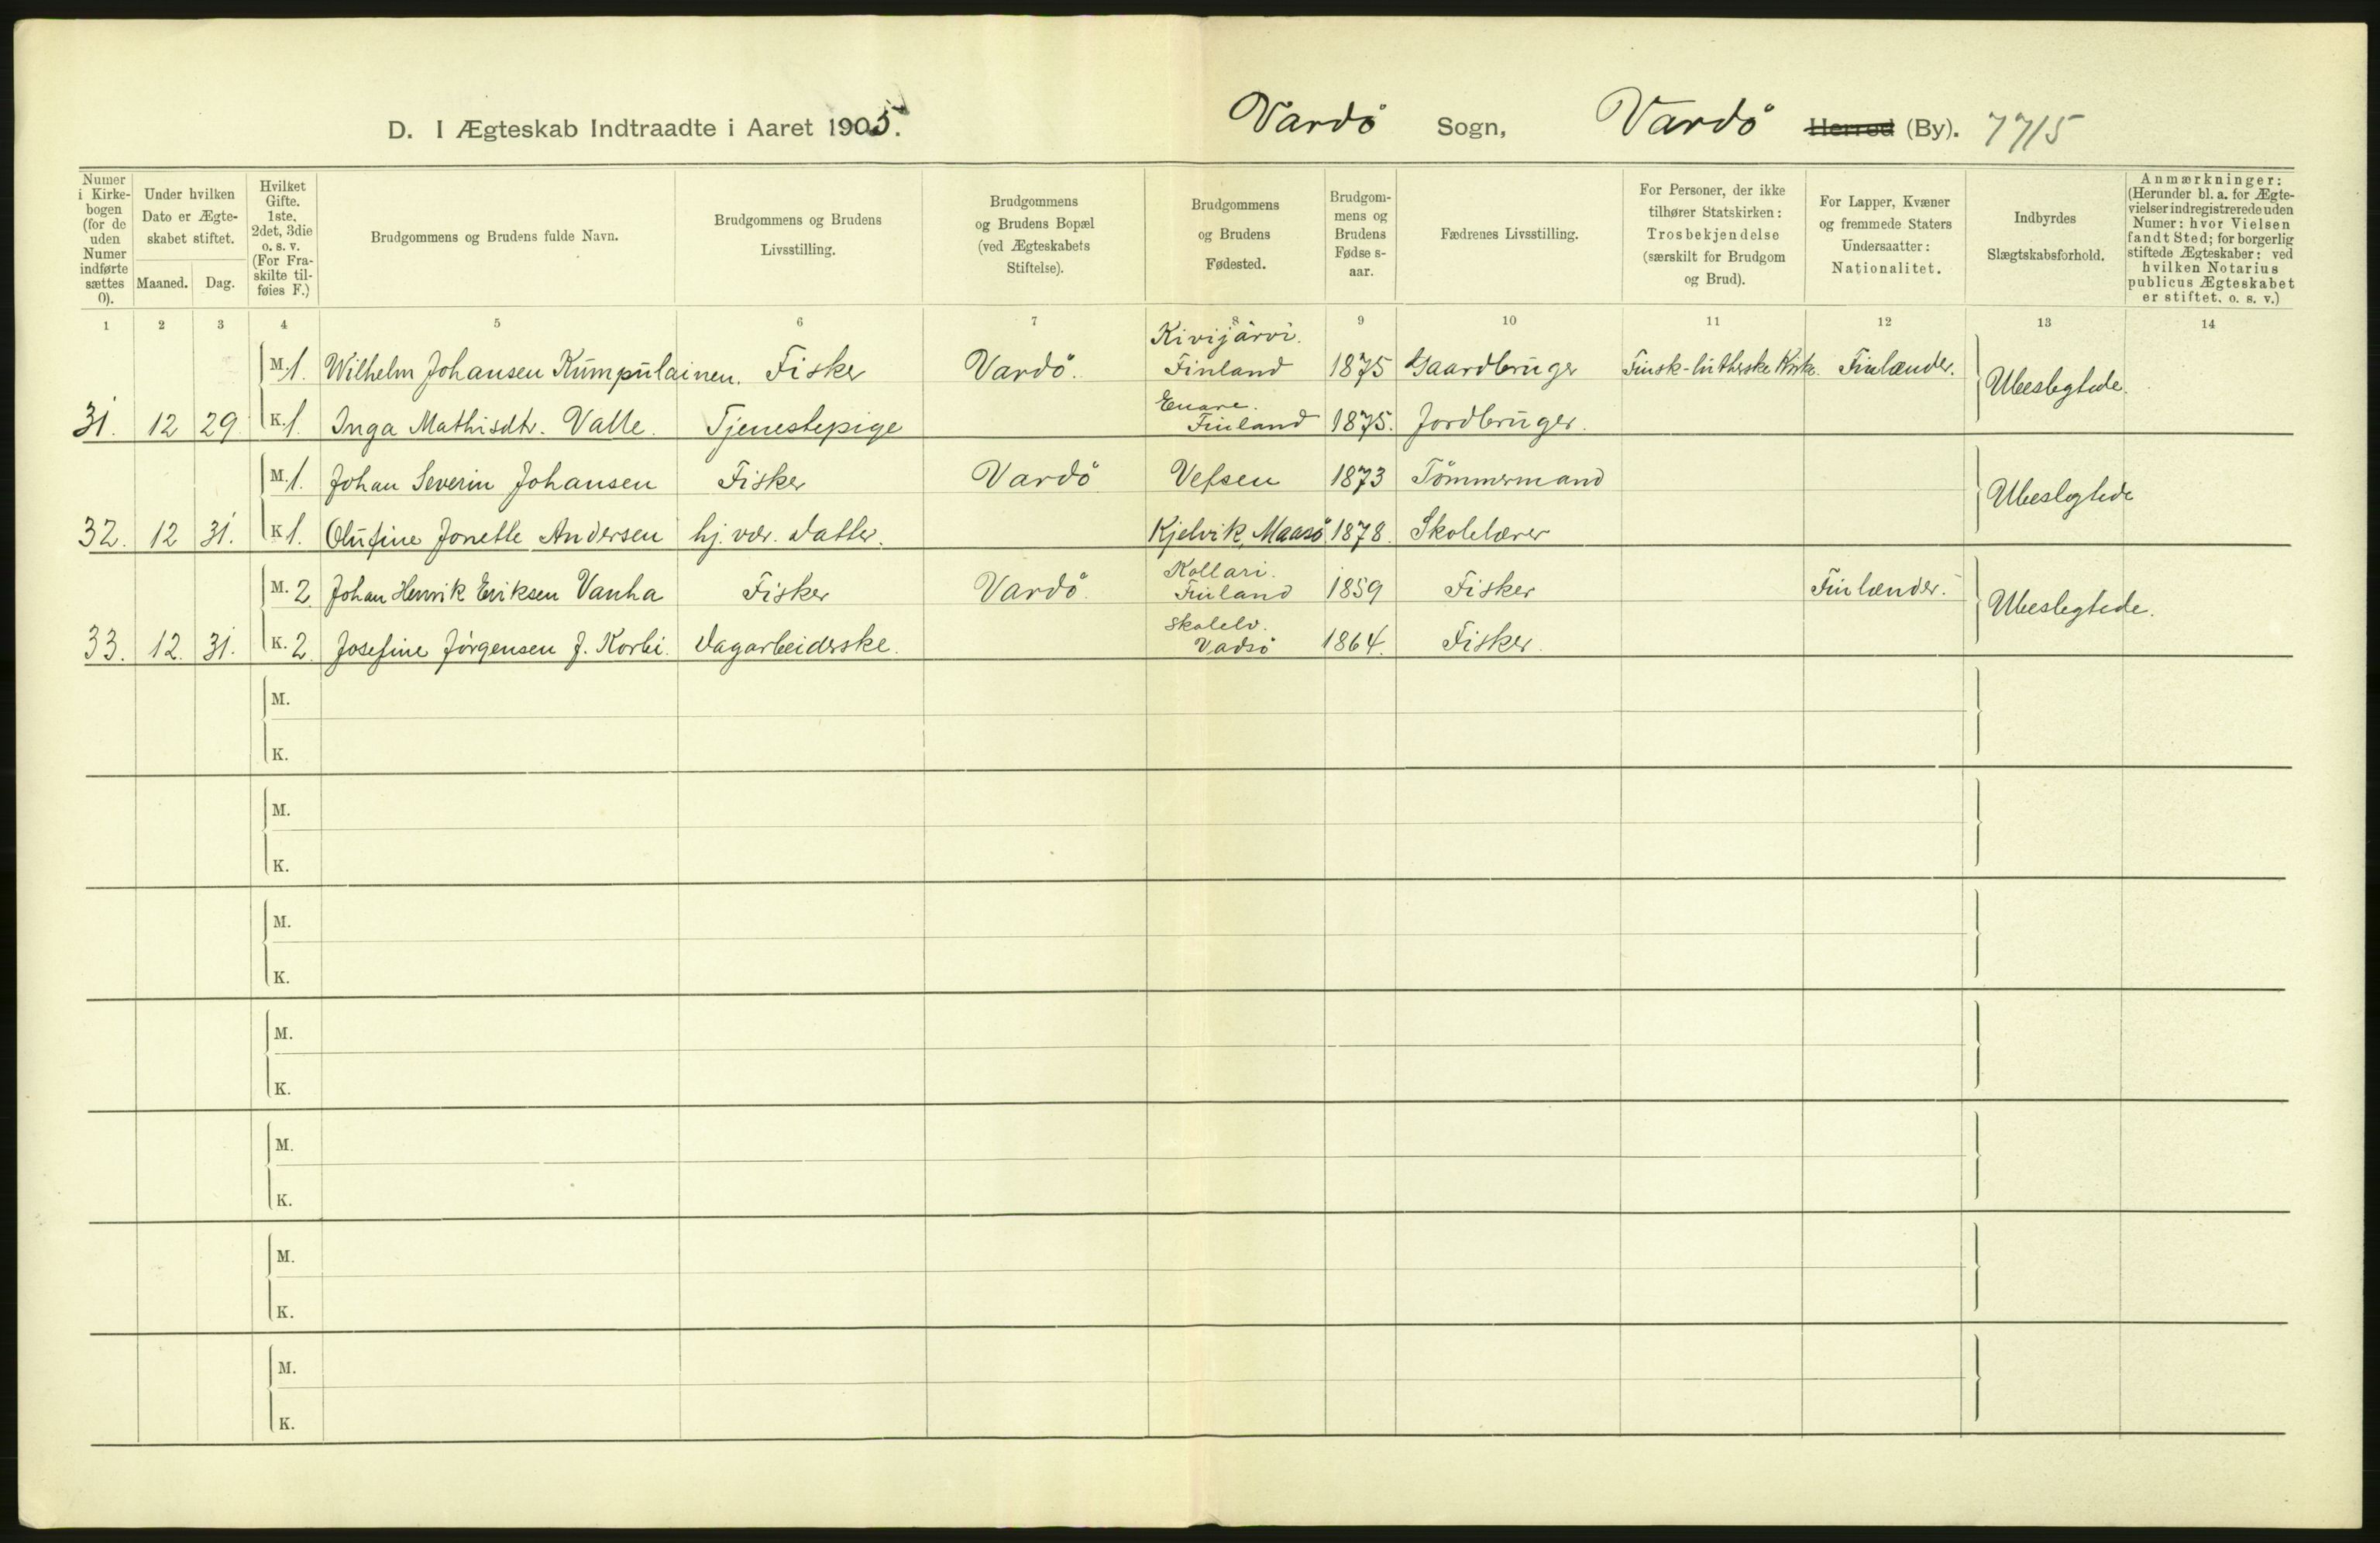 D. I Ægteskab Indtraadte i Aaret 1905. Vardö Sogn, Vardö Herred (By). 7715
Numer i Kirkebogen (for de uden Numer indførte sættes 0).
Under hvilken Dato er Ægteskabet stiftet.
Maaned. Dag.
Hvilket Gifte. 1ste, 2det, 3die o. s. v. (For Fraskilte tilføies F.)
Brudgommens og Brudens fulde Navn.
Brudgommens og Brudens Livsstilling.
Brudgommens og Brudens Bopæl (ved Ægteskabets Stiftelse).
Brudgommens og Brudens Fødested.
Brudgommens og Brudens Fødselsaar.
Fædrenes Livsstilling.
For Personer, der ikke tilhører Statskirken: Trosbekjendelse (særskilt for Brudgom og Brud).
For Lapper, Kvæner og fremmede Staters Undersaatter: Nationalitet.
Indbyrdes Slægtskabsforhold.
Anmærkninger: (Herunder bl. a. for Ægtevielser indregistrerede uden Numer: hvor Vielsen fandt Sted; for borgerlig stiftede Ægteskaber: ved hvilken Notarius publicus Ægteskabet er stiftet. o. s. v.)
1 2 3 4 5 6 7 8 9 10 11 12 13 14
M. 1. Wilhelm Johansen Kumpulainen. Fisker Vardö. Kivijärvi. Finland 1875 Gaardbruger Finsk-lutherske Kirke. Finlænder. Ubeslegtede.
31. 12 29. K. 1. Inga Mathisdtr. Valle. Tjenestepige Enare. Finland 1875. Jordbruger.
M. 1. Johan Severin Johansen Fisker Vardö Vefsen 1873 Tömmermand Ubeslegtede
32. 12 31. K. 1. Olufine Jonette Andersen hj. vær. datter. Kjelvik, Maasö 1878. Skolelærer
M. 2. Johan Henrik Eriksen Vanha Fisker Vardö. Kollari. Finland 1859 Fisker Finlænder. Ubeslegtede.
33. 12. 31. K. 2. Josefine Jörgensen f. Korbi. Dagarbeiderske. Skolelv. Vadsö 1864. Fisker.
M.
K.
M.
K.
M.
K.
M.
K.
M.
K.
M.
K.
M.
K.